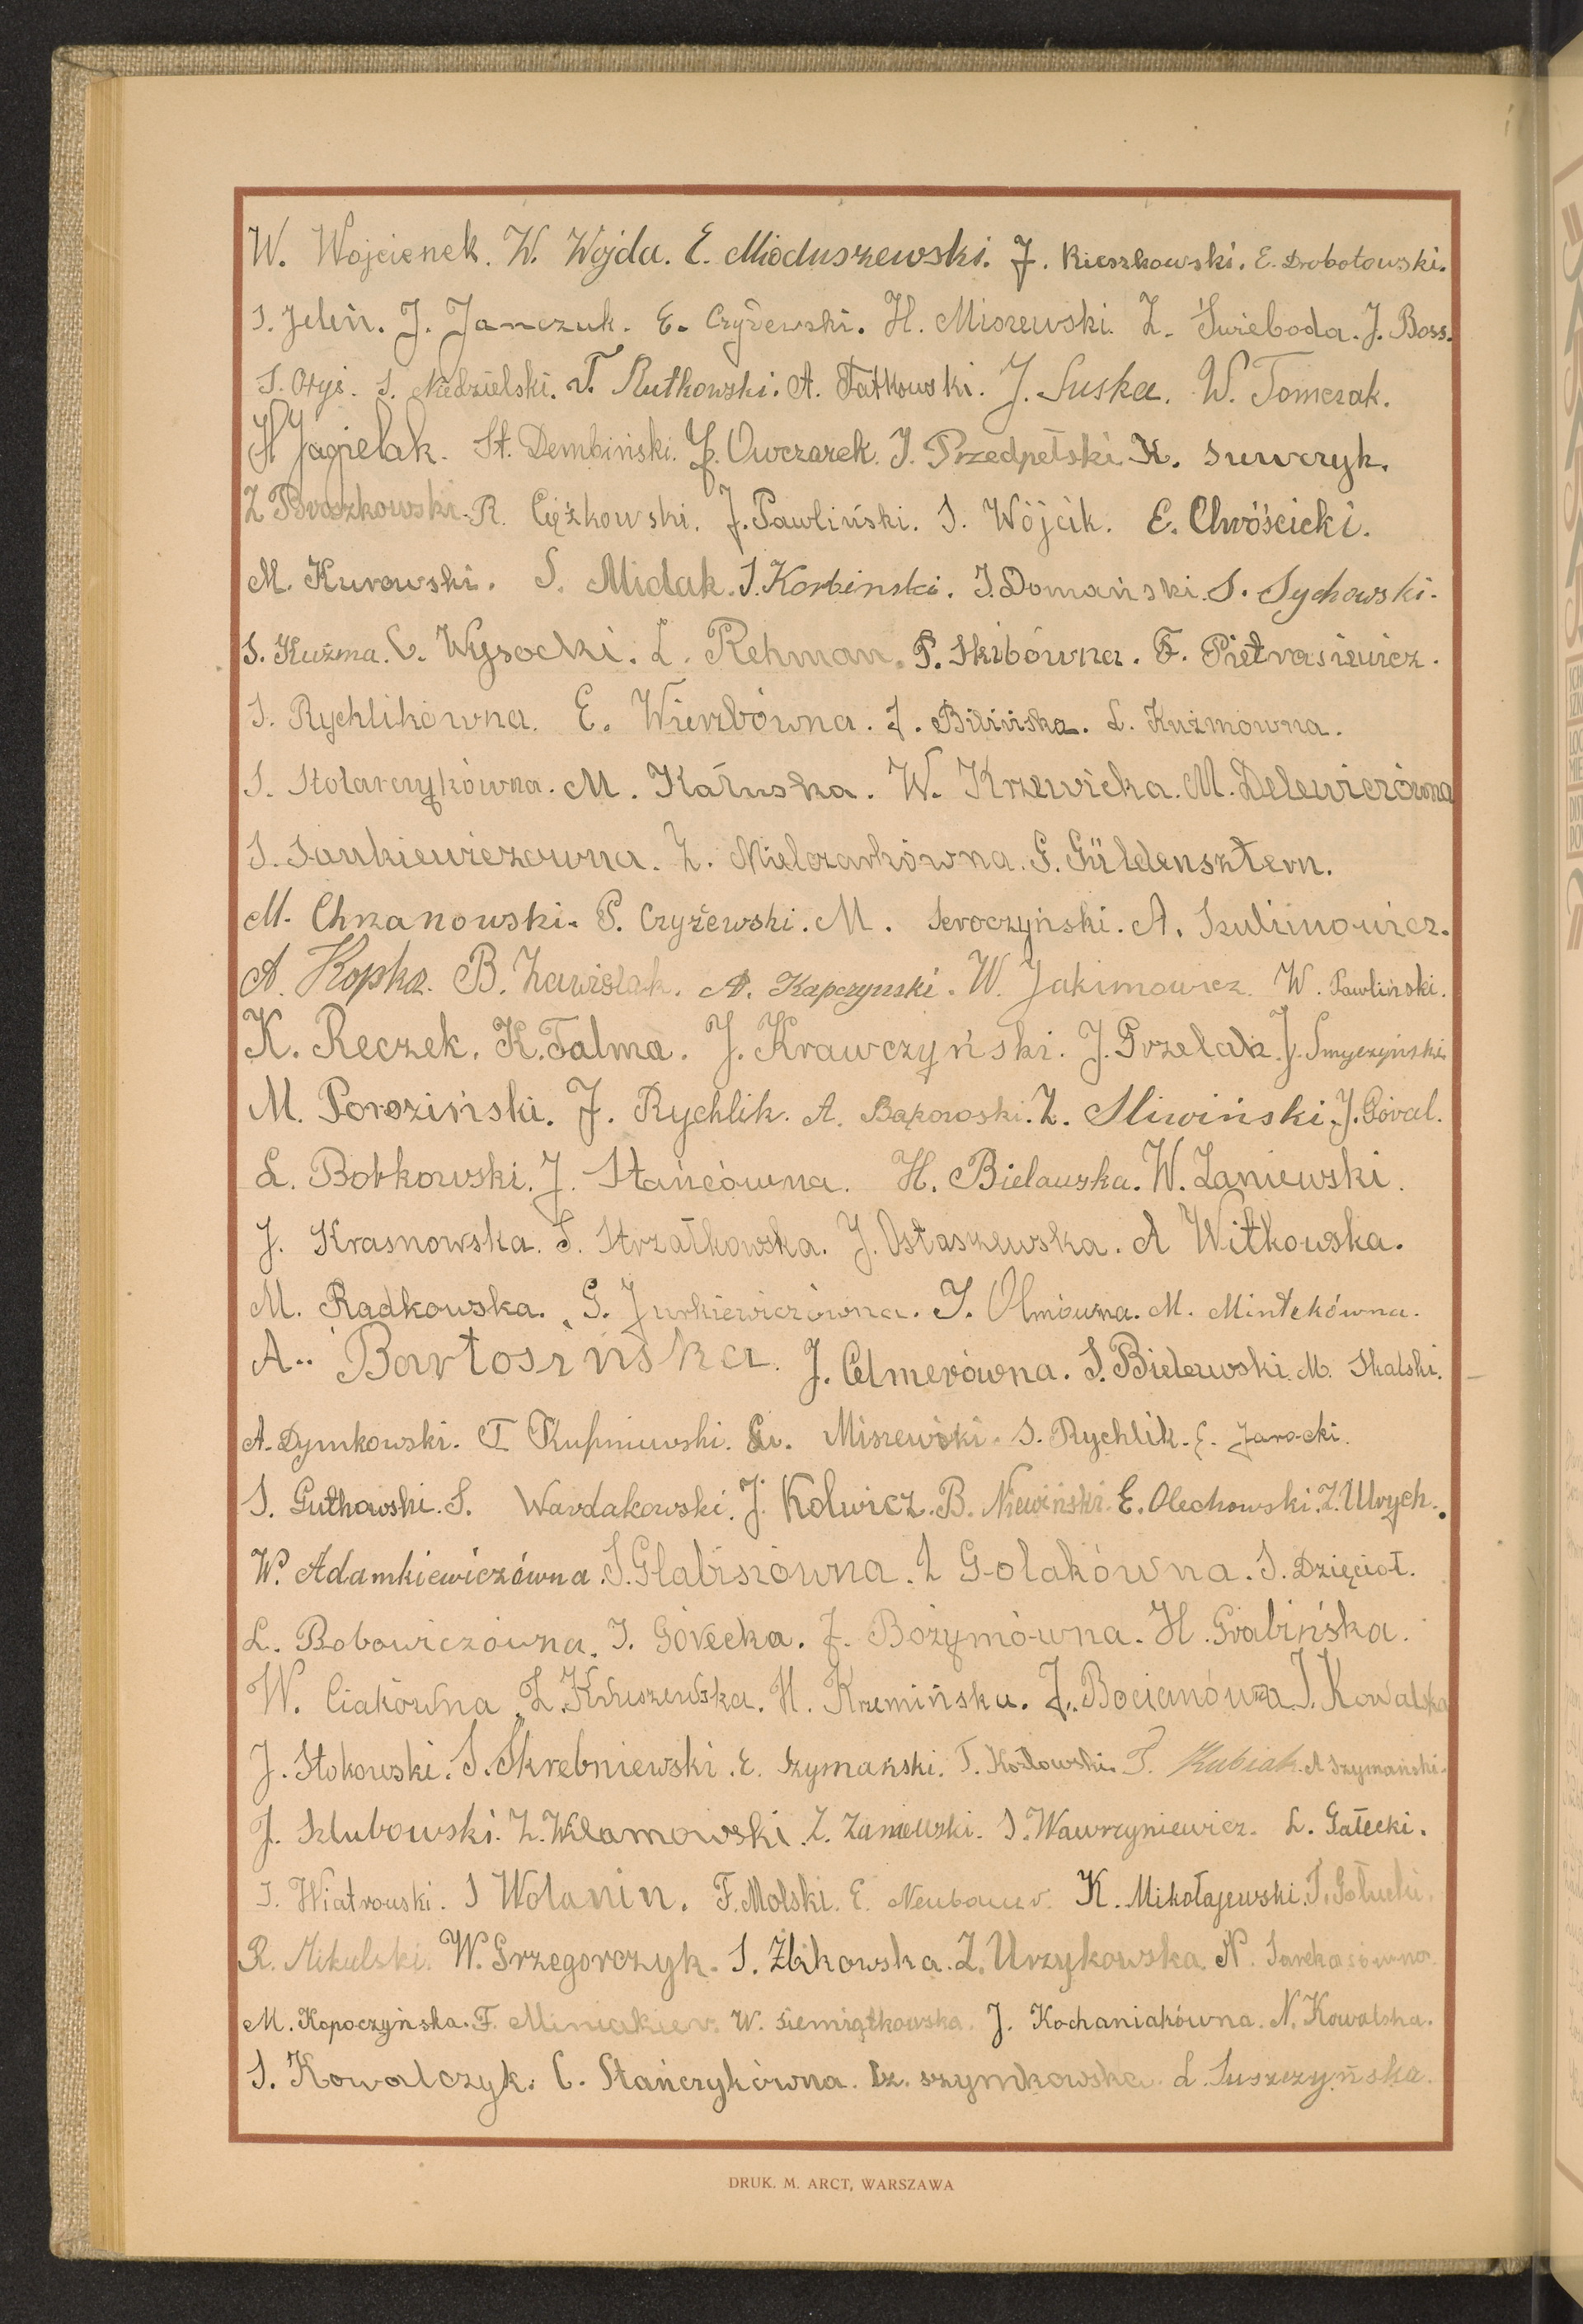 W. Wojcienek. W. Wojda. E. Mioduszewski. J. Kieszkowski. E. Drobotowski.
S. Jeleń. J. Janczuk. E. Czyżewski. H. Miszewski. Z. Świeboda. J. Boss.
S. Niedzielski. T. Rutkowski. A. Fatkowski. J. Suska. W. Tomczak.
H Jagielak. St. Dembiński. J. Owczarek. J. Przedpełski. K. Suwczyk.
Z Broszkowski. R. Ciężkowski. J. Pawliński. S. Wójcik. E. Chróścicki.
M. Kurowski. S. Midak. S. Korbinski. J. Domański. S. Sychowski.
S. Kuźma. C. Wysocki. L. Rehman. P. Skibówna. F. Pietrasiewicz.
S. Rychlikówna. E. Wierzbówna. J. Bilińska. L. Kuźmówna.
S. Stolarczykówna. M. Kałuska. W. Krzewicka. M. Delewiczówna
S. Sankiewiczówna. Z. Mielczarkówna. G. Güldensztern.
M. Chrzanowski. P. Czyżewski. M. Seroczyński. A. Szulimowicz.
A. Kopka. B. Zawiślak. A. Kapczynski. W. Jakimowicz. W. Pawliński.
K. Reczek. K. Talma. J. Krawczyński. J. Grzelak. J. Smyczyński
M. Poroziński. J. Rychlik. A. Bąkowski. Z. Sliwiński. J. Góral.
L. Bobkowski. J. Stańcówna. H. Bielawska. W. Zaniewski.
J. Krasnowska. S. Strzałkowska. J. Ostaszewska. A Witkowska.
M. Radkowska. G. Jurkiewiczówna. J. Olmówna. M. Mintekówna.
A. Bartosińska. J. Celmerówna. S. Bielewski. M. Skalski.
A. Dymkowski. T Kupniewski. Miszewski. S. Rychlik. E. Jarocki.
S. Gutkowski. S. Wardakowski. J. Kolwicz. B. Niewiński. E. Olechowski. Z. Ulrych.
W. Adamkiewiczówna. S. Glabiszówna. Z Golakówna. S. Dzięcioł.
L. Bobowiczówna. J. Górecka. J. Bożymówna. H. Grabińska.
W. Ciakówna. Z. Kruszewska. H. Krzemińska. J. Bocianówna. J. Kowalska
J. Stokowski. S. Skrebniewski. E. Szymański. T. Kozłowski. T. Kubiak. A Szymański.
J. Szlubowski. Z. Wilamowski. Z. Zaniewski. S. Wawrzyniewicz. L. Gałecki.
S. Wiatrowski. S Wolanin. F. Molski. E. Neubauer. K. Mikołajewski. T. Gołucki.
R. Mikulski. W. Grzegorczyk. S. Żbikowska. Z. Urzykowska. N. Sarekasówna.
M. Kopoczyńska. F. Miniakiew. W. Siemiątkowska. J. Kochaniakówna. N. Kowalska.
S. Kowalczyk. C. Stańczykówna. Cz. Szymkowska. L. Suszczyńska.
DRUK. M. ARCT, WARSZAWA